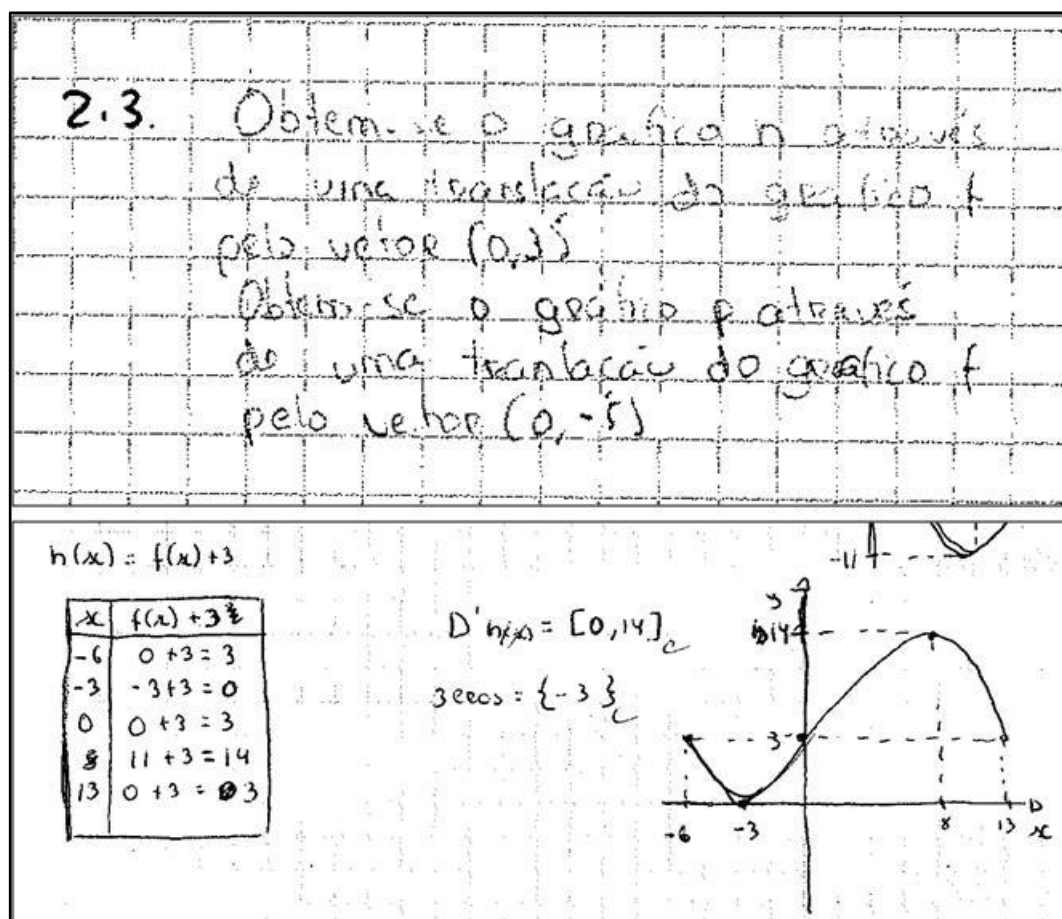 2.3. Obtem-se o gráfico h através
de uma translação do gráfico f
pelo vetor (0,3)
Obtem-se o gráfico p através
de uma tranlação do gráfico f
pelo vetor (0,-5)
h(x) = f(x)+3
-11
x f(x) + 3
-6 0 + 3 = 3
-3 -3+3 = 0
0 0 + 3 = 3
8 11 + 3 = 14
13 0 + 3 = 3
D'h(x) = [0,14] c
zeros = {-3} c
y
14
3
-6 -3 8 13
x